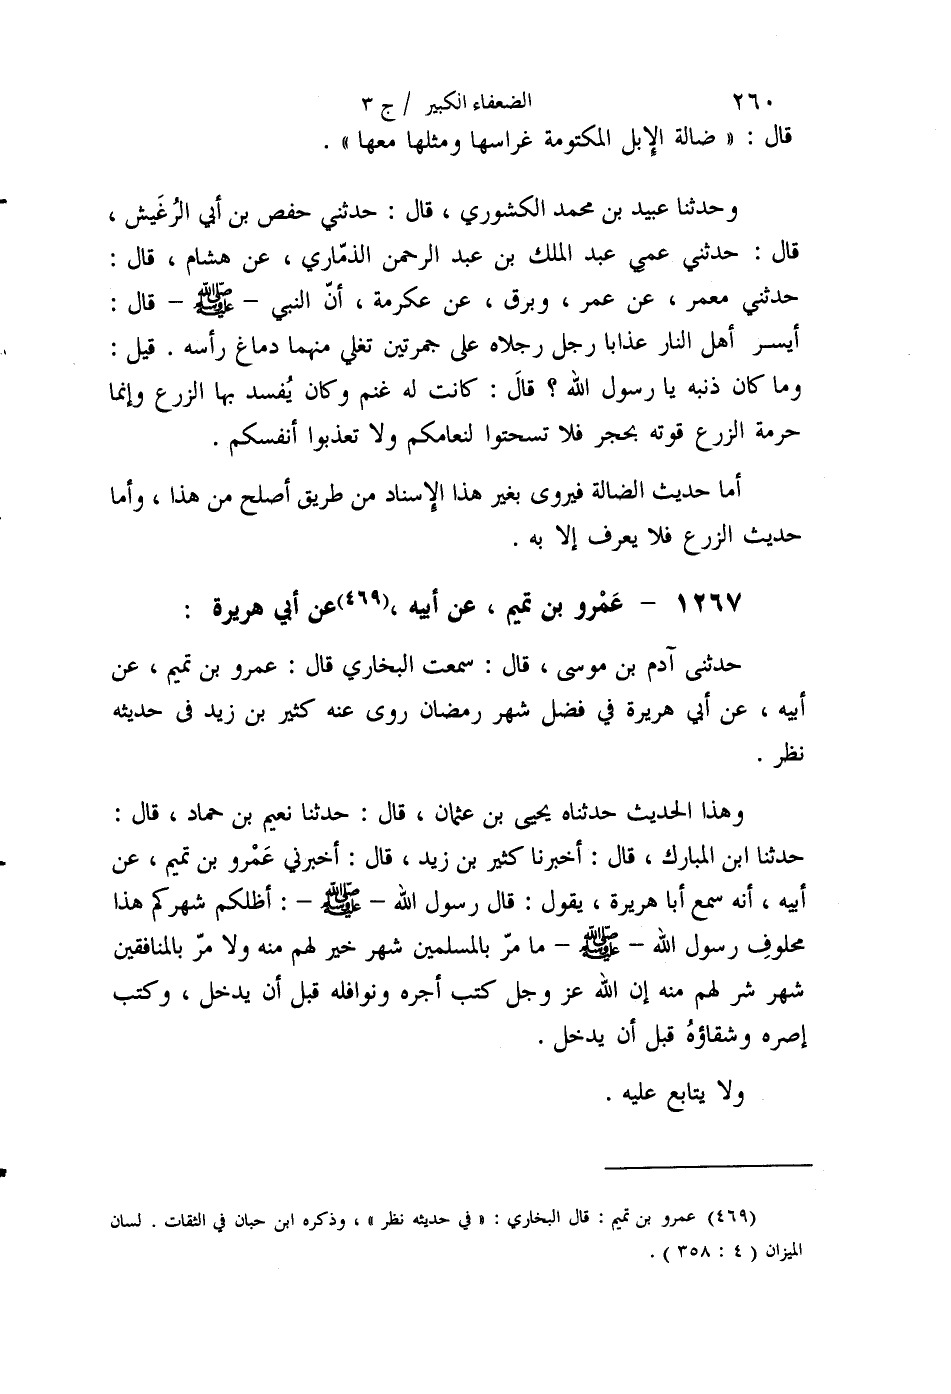 ٢٦٠ الضعفاء الكبير / ج ٣
قال : « ضالة الإبل المكتومة غراسها ومثلها معها » .
وحدثنا عبيد بن محمد الكشوري ، قال : حدثني حفص بن أبي الرُغَيش ،
قال : حدثني عمي عبد الملك بن عبد الرحمن الذمّاري ، عن هشام ، قال :
حدثني معمر ، عن عمر ، وبرق ، عن عكرمة ، أنّ النبي – ﷺ – قال :
أيسر أهل النار عذابا رجل رجلاه على جمرتين تغلي منهما دماغ رأسه . قيل :
وما كان ذنبه يا رسول الله ؟ قالَ : كانت له غنم وكان يُفسد بها الزرع وإنما
حرمة الزرع قوته بحجر فلا تسحتوا لنعامكم ولا تعذبوا أنفسكم .
أما حديث الضالة فيروى بغير هذا الإسناد من طريق أصلح من هذا ، وأما
حديث الزرع فلا يعرف إلا به .
١٢٦٧ – عَمْرو بن تميم ، عن أبيه ،(٤٦٩)عن أبي هريرة :
حدثنى آدم بن موسى ، قال : سمعت البخاري قال : عمرو بن تميم ، عن
أبيه ، عن أبي هريرة في فضل شهر رمضان روى عنه كثير بن زيد فى حديثه
نظر .
وهذا الحديث حدثناه يحيى بن عثمان ، قال : حدثنا نعيم بن حماد ، قال :
حدثنا ابن المبارك ، قال : أخبرنا كثير بن زيد ، قال : أخبرني عَمْرو بن تميم ، عن
أبيه ، أنه سمع أبا هريرة ، يقول : قال رسول الله – ﷺ – : أظلكم شهركم هذا
محلوفِ رسول الله – ﷺ – ما مرّ بالمسلمين شهر خير لهم منه ولا مرّ بالمنافقين
شهر شر لهم منه إن الله عز وجل كتب أجره ونوافله قبل أن يدخل ، وكتب
إصره وشقاؤهُ قبل أن يدخل .
ولا يتابع عليه .
(٤٦٩) عمرو بن تميم : قال البخاري : « في حديثه نظر » ، وذكره ابن حبان في الثقات . لسان
الميزان ( ٤ : ٣٥٨ ) .